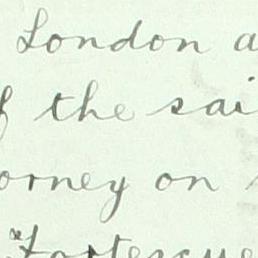 London a
f the sai
orney on
Fortescue